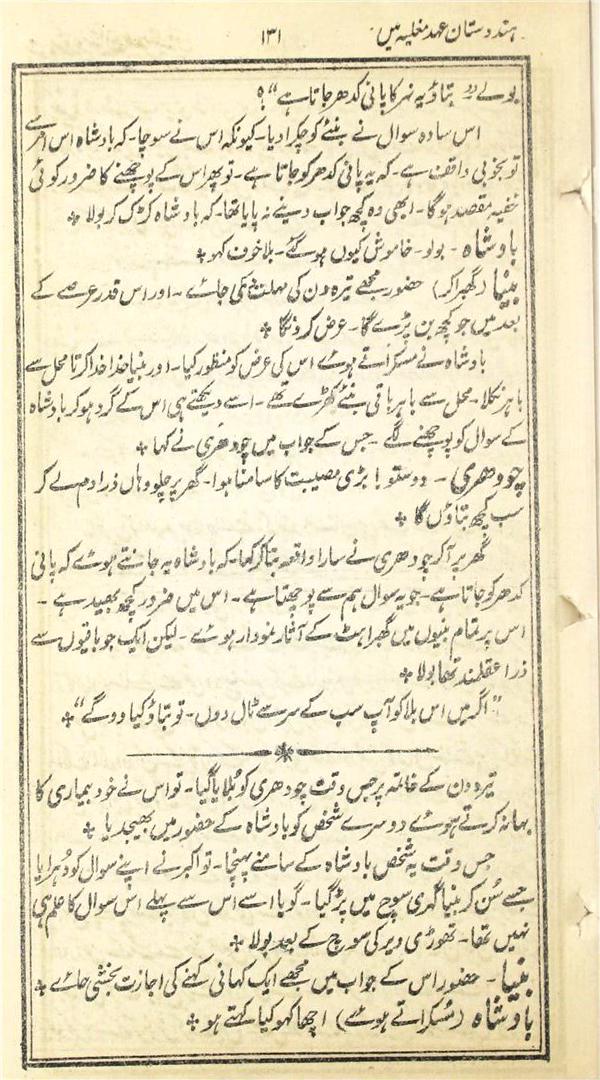 ہندوستان عہد مغلیہ میں ۱۳۱
بولے " بتاؤ یہ نہر کا پانی کدھر جاتا ہے"؟
اس سادہ سوال نے بنئے کو چکرا دیا۔ کیونکہ اس نے سوچا۔ کہ بادشاہ اس امر سے
تو بخوبی واقف ہے۔ کہ یہ پانی کدھر کو جاتا ہے۔ تو پھر اس کے پوچھنے کا ضرور کوئی
خفیہ مقصد ہوگا۔ ابھی وہ کچھ جواب دینے نہ پایا تھا۔ کہ بادشاہ کڑک کر بولا ٭
بادشاہ۔ بولو۔ خاموش کیوں ہو گئے۔ بلا خوف کہو ٭
بنیا (گھبرا کر) حضور مجھے تیرہ دن کی مہلت بخشی جائے۔ اور اس قدر عرصے کے
بعد میں جو کچھ بن پڑے گا۔ عرض کروں گا ٭
بادشاہ نے مسکراتے ہوئے اس کی عرض کو منظور کیا۔ اور بنیا خدا خدا کرتا محل سے
باہر نکلا۔ محل سے باہر باقی بنئے کھڑے تھے۔ اسے دیکھتے ہی اس کے گرد ہو کر بادشاہ
کے سوال کو پوچھنے لگے۔ جس کے جواب میں چودھری نے کہا ٭
چودھری۔ دوستو! بڑی مصیبت کا سامنا ہوا۔ گھر پر چلو وہاں ذرا دم لے کر
سب کچھ بتاؤں گا ٭
گھر پر آ کر چودھری نے سارا واقعہ بتا کر کہا۔ کہ بادشاہ یہ جانتے ہوئے کہ پانی
کدھر کو جاتا ہے۔ جو یہ سوال ہم سے پوچھتا ہے۔ اس میں ضرور کچھ بھید ہے۔
اس پر تمام بنیوں میں گھبراہٹ کے آثار نمودار ہوئے۔ لیکن ایک جو باقیوں سے
ذرا عقلمند تھا بولا ٭
"اگر میں اس بلا کو آپ سب کے سر سے ٹال دوں۔ تو بتاؤ کیا دو گے" ٭
تیرہ دن کے خاتمہ پر جس وقت چودھری کو بلایا گیا۔ تو اس نے خود بیماری کا
بہانہ کرتے ہوئے دوسرے شخص کو بادشاہ کے حضور میں بھیجدیا ٭
جس وقت یہ شخص بادشاہ کے سامنے پہنچا۔ تو اکبر نے اپنے سوال کو دُہرایا
جسے سُن کر بنیا گہری سوچ میں پڑ گیا۔ گویا اسے اس سے پہلے اس سوال کا علم ہی
نہیں تھا۔ تھوڑی دیر کی سوچ کے بعد بولا ٭
بنیا۔ حضور اس کے جواب میں مجھے ایک کہانی کہنے کی اجازت بخشی جائے ٭
بادشاہ (مُسکراتے ہوئے) اچھا کہو کیا کہتے ہو ٭